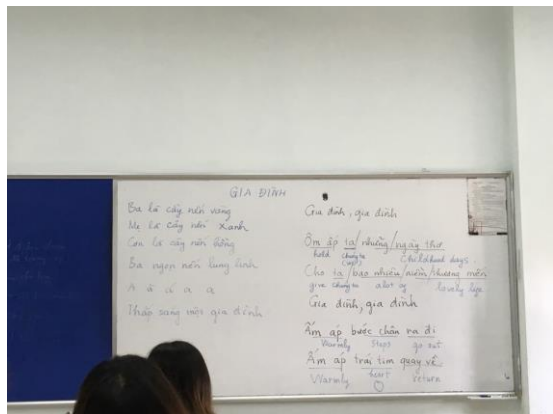 GIA ĐÌNH
Ba là cây nến vàng
Mẹ là cây nến xanh
Con là cây nến hồng
Ba ngọn nến lung linh
A á à a a
Thắp sáng một gia đình
Gia đình, gia đình
Ôm ấp ta / những / ngày thơ
hold chúng ta (us) Childhood days
Cho ta / bao nhiêu / niềm / thương mến
give chúng ta alot of lovely
Gia đình, gia đình
Ấm áp bước chân ra đi
Warmly steps go out
Ấm áp trái tim quay về
Warmly heart return